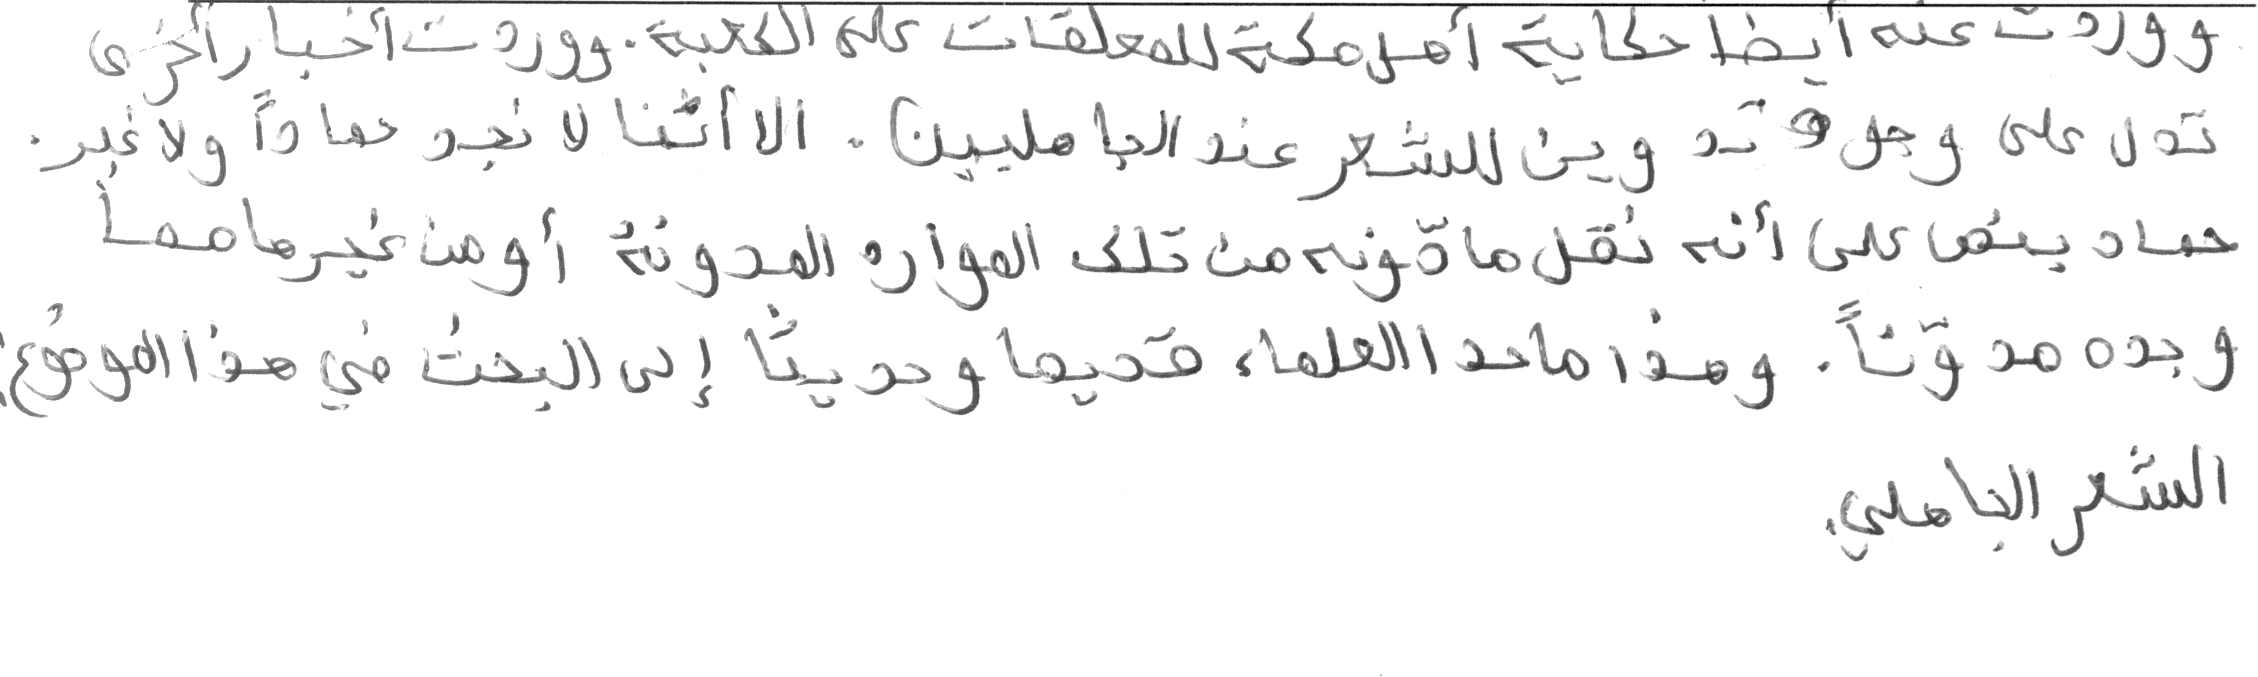 ووردت عنه أيضا حكاية أهل مكة للمعلقات على الكعبة. ووردت أخبار أخرى
تدل على وجود تدوين للشعر عند الجاهليين. الا أننا لا نجد حماداً ولا غير.
حماد ينص على أنه نقل ما دّونه من تلك الموارد المدونة أو من غيرها مما
وجده مدوّناً. وهذا ما حدا العلماء قديما وحديثًا إلى البحث في هذا الموضوع:
الشعر الجاهلي.